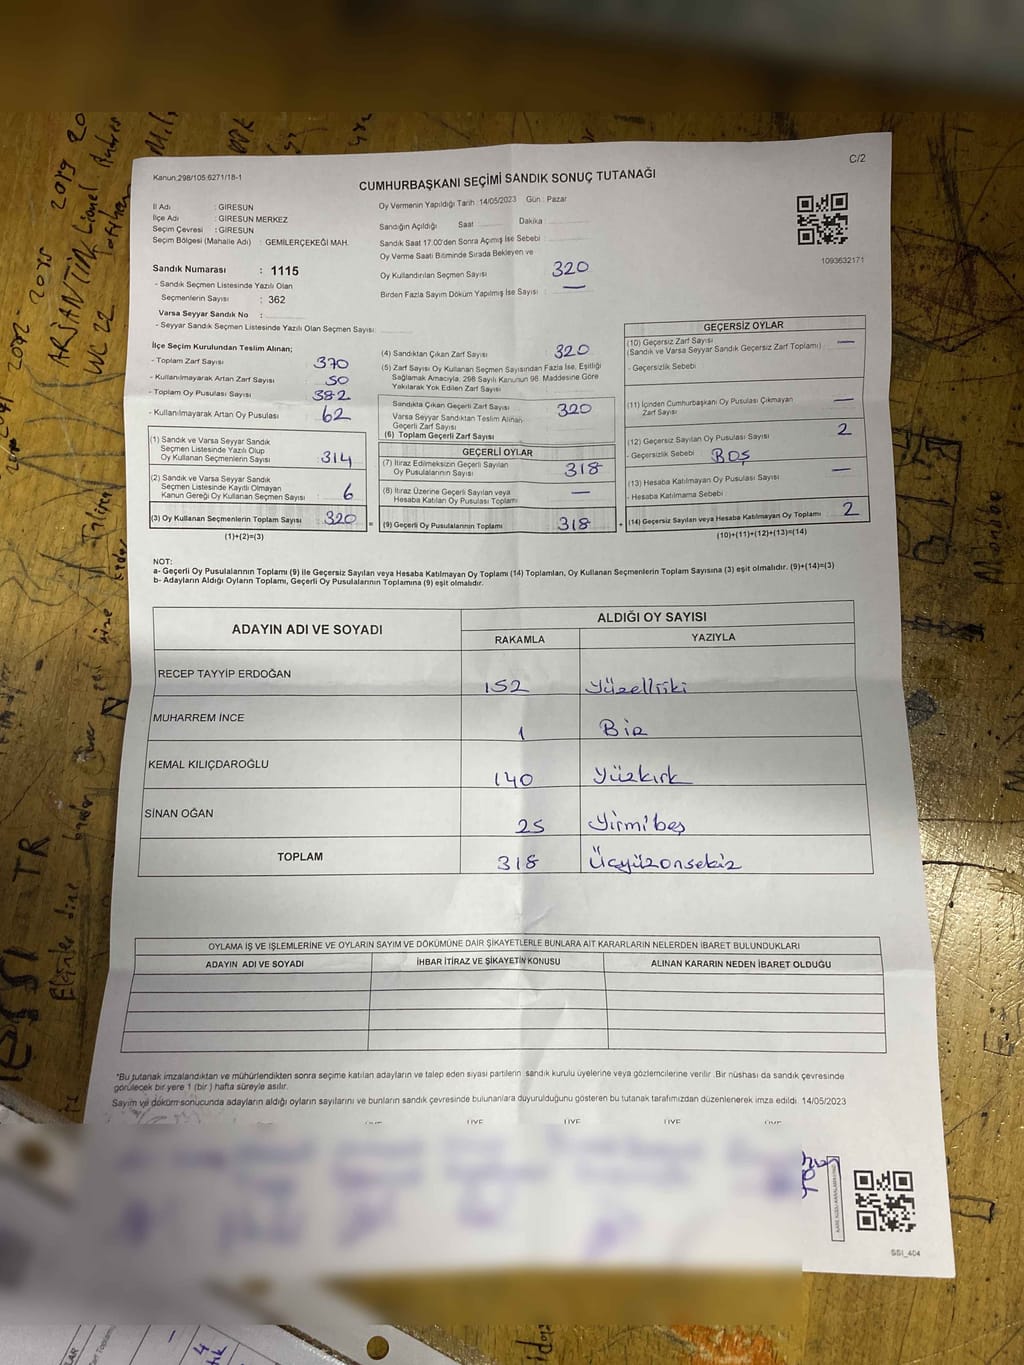 C/2
Kanun:298/105.6271/18-1
CUMHURBAŞKANI SEÇİMİ SANDIK SONUÇ TUTANAĞI
İl Adı : GİRESUN
İlçe Adı : GİRESUN MERKEZ
Seçim Çevresi : GİRESUN
Seçim Bölgesi (Mahalle Adı) : GEMİLERÇEKEĞİ MAH.
Sandık Numarası : 1115
- Sandık Seçmen Listesinde Yazılı Olan
Seçmenlerin Sayısı : 362
Varsa Seyyar Sandık No :
- Seyyar Sandık Seçmen Listesinde Yazılı Olan Seçmen Sayısı:
Oy Vermenin Yapıldığı Tarih :14/05/2023 Gün : Pazar
Sandığın Açıldığı Saat : Dakika :
Sandık Saat 17.00'den Sonra Açımış İse Sebebi :
Oy Verme Saati Bitiminde Sırada Bekleyen ve
Oy Kullandırılan Seçmen Sayısı : 320
Birden Fazla Sayım Döküm Yapılmış İse Sayısı : —
1093632171
İlçe Seçim Kurulundan Teslim Alınan;
- Toplam Zarf Sayısı : 370
- Kullanılmayarak Artan Zarf Sayısı : 50
- Toplam Oy Pusulası Sayısı : 382
- Kullanılmayarak Artan Oy Pusulası : 62
(1) Sandık ve Varsa Seyyar Sandık
Seçmen Listesinde Yazılı Olup
Oy Kullanan Seçmenlerin Sayısı : 314
(2) Sandık ve Varsa Seyyar Sandık
Seçmen Listesinde Kayıtlı Olmayan
Kanun Gereği Oy Kullanan Seçmen Sayısı : 6
(3) Oy Kullanan Seçmenlerin Toplam Sayısı : 320
(1)+(2)=(3)
(4) Sandıktan Çıkan Zarf Sayısı : 320
(5) Zarf Sayısı Oy Kullanan Seçmen Sayısından Fazla İse, Eşitliği
Sağlamak Amacıyla, 298 Sayılı Kanunun 98. Maddesine Göre
Yakılarak Yok Edilen Zarf Sayısı :
Sandıkta Çıkan Geçerli Zarf Sayısı : 320
Varsa Seyyar Sandıktan Teslim Alınan
Geçerli Zarf Sayısı :
(6) Toplam Geçerli Zarf Sayısı
GEÇERLİ OYLAR
(7) İtiraz Edilmeksizin Geçerli Sayılan
Oy Pusulalarının Sayısı : 318
(8) İtiraz Üzerine Geçerli Sayılan veya
Hesaba Katılan Oy Pusulası Toplamı : —
= (9) Geçerli Oy Pusulalarının Toplamı : 318
GEÇERSİZ OYLAR
(10) Geçersiz Zarf Sayısı : —
(Sandık ve Varsa Seyyar Sandık Geçersiz Zarf Toplamı)
- Geçersizlik Sebebi
(11) İçinden Cumhurbaşkanı Oy Pusulası Çıkmayan
Zarf Sayısı : —
(12) Geçersiz Sayılan Oy Pusulası Sayısı : 2
- Geçersizlik Sebebi : BOŞ
(13) Hesaba Katılmayan Oy Pusulası Sayısı : —
- Hesaba Katılmama Sebebi
+ (14) Geçersiz Sayılan veya Hesaba Katılmayan Oy Toplamı : 2
(10)+(11)+(12)+(13)=(14)
NOT:
a- Geçerli Oy Pusulalarının Toplamı (9) ile Geçersiz Sayılan veya Hesaba Katılmayan Oy Toplamı (14) Toplamları, Oy Kullanan Seçmenlerin Toplam Sayısına (3) eşit olmalıdır. (9)+(14)=(3)
b- Adayların Aldığı Oyların Toplamı, Geçerli Oy Pusulalarının Toplamına (9) eşit olmalıdır.
ADAYIN ADI VE SOYADI
ALDIĞI OY SAYISI
RAKAMLA YAZIYLA
RECEP TAYYİP ERDOĞAN 152 Yüzelliiki
MUHARREM İNCE 1 Bir
KEMAL KILIÇDAROĞLU 140 Yüzkırk
SİNAN OĞAN 25 Yirmibeş
TOPLAM 318 Üçyüzonsekiz
OYLAMA İŞ VE İŞLEMLERİNE VE OYLARIN SAYIM VE DÖKÜMÜNE DAİR ŞİKAYETLERLE BUNLARA AİT KARARLARIN NELERDEN İBARET BULUNDUKLARI
ADAYIN ADI VE SOYADI İHBAR İTİRAZ VE ŞİKAYETİN KONUSU ALINAN KARARIN NEDEN İBARET OLDUĞU
*Bu tutanak imzalandıktan ve mühürlendikten sonra seçime katılan adayların ve talep eden siyasi partilerin sandık kurulu üyelerine veya gözlemcilerine verilir. Bir nüshası da sandık çevresinde
görülecek bir yere 1 (bir) hafta süreyle asılır.
Sayım ve döküm sonucunda adayların aldığı oyların sayılarını ve bunların sandık çevresinde bulunanlara duyurulduğunu gösteren bu tutanak tarafımızdan düzenlenerek imza edildi. 14/05/2023
ÜYE ÜYE ÜYE ÜYE ÜYE
SSI_404
ARJANTİN Lionel
WC 22
TR